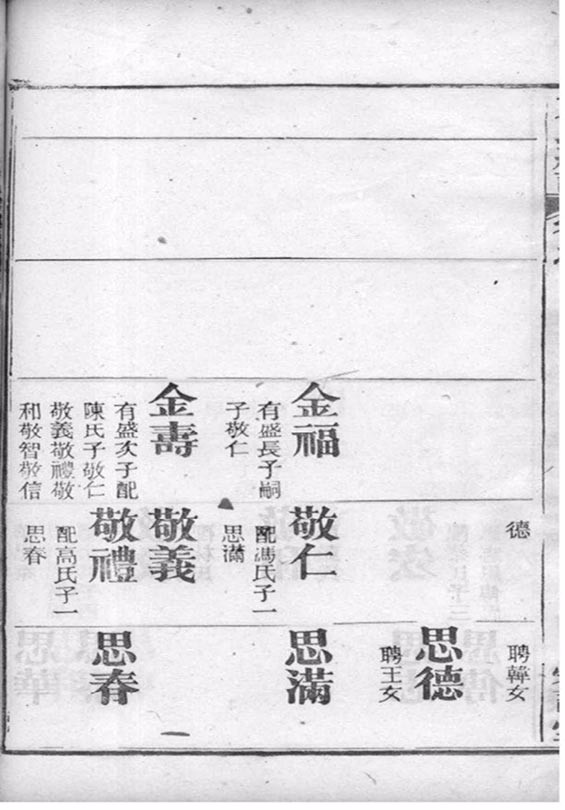 金福
有盛長子嗣
子敬仁
金壽
有盛次子配
陳氏子敬仁
敬義敬禮敬
和敬智敬信
德
敬仁
配馮氏子一
思滿
敬義
敬禮
配高氏子一
思春
聘韓女
思德
聘王女
思滿
思春